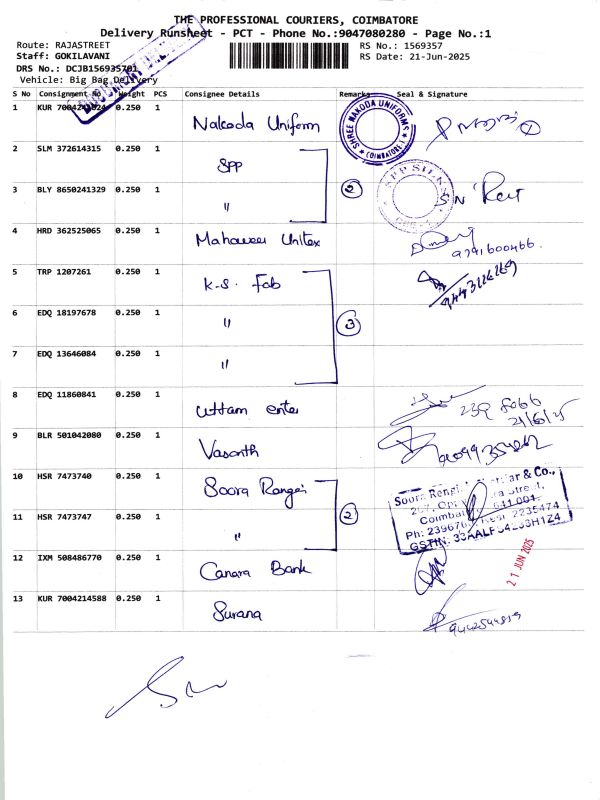 THE PROFESSIONAL COURIERS, COIMBATORE
Delivery Runsheet - PCT - Phone No.:9047080280 - Page No.:1
Route: RAJASTREET
Staff: GOKILAVANI
DRS No.: DCJB156935701
Vehicle: Big Bag Delivery
RS No.: 1569357
RS Date: 21-Jun-2025
S No Consignment No Weight PCS Consignee Details Remarks Seal & Signature
1 KUR 0.250 1 Nakoda Uniform
SHREE NAKODA UNIFORMS
* COIMBATORE *
2 SLM 372614315 0.250 1 SPP
3 BLY 8650241329 0.250 1 " 2
SPP SILKS
4 HRD 362525065 0.250 1 Mahaveer Unitex
9791600466.
5 TRP 1207261 0.250 1 K.S. Fab
6 EDQ 18197678 0.250 1 " 3
7 EDQ 13646084 0.250 1 "
8 EDQ 11860841 0.250 1 Uttam enter
21/6/25
9 BLR 501042080 0.250 1 Vasanth
10 HSR 7473740 0.250 1 Soora Rangai
11 HSR 7473747 0.250 1 " 2
& Co.,
641 001.
2235474
12 IXM 508486770 0.250 1 Canara Bank
21 JUN 2025
13 KUR 7004214588 0.250 1 Surana